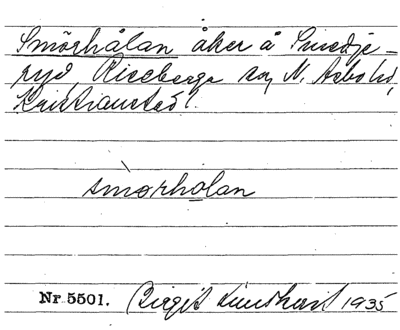 Smörhålan åker å Smedje-
ryd, Riseberga sn, N. Åsbo hd,
Kristianstad l.
smòrholan
Nr 5501. Birgit 1935